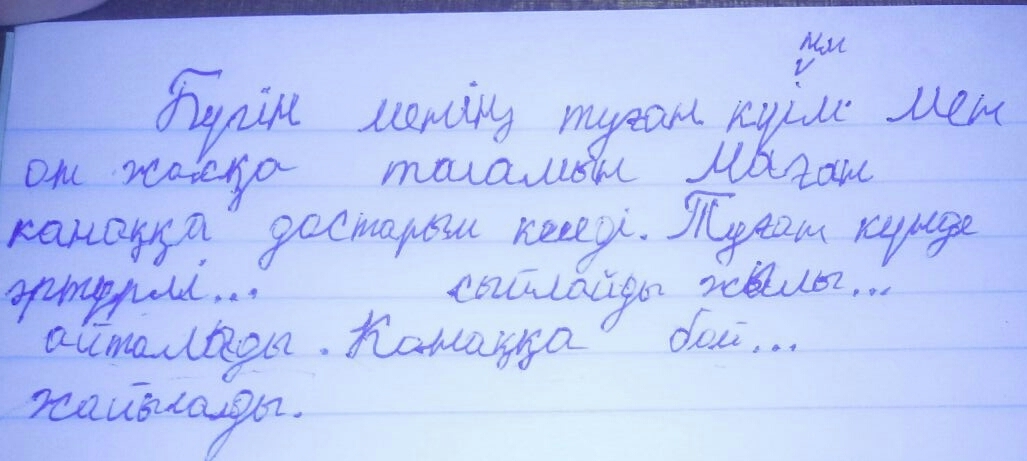 Бүгін менің туған күнім Мен
он жасқа толамын Маған
қонаққа достарым келеді. Туған күнде
әртүрлі... сыйлайды жылы...
айталады. Қонаққа бай...
жайылады.